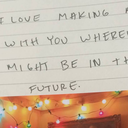 I LOVE MAKING
WITH YOU WHERE
MIGHT BE IN TH
FUTURE.